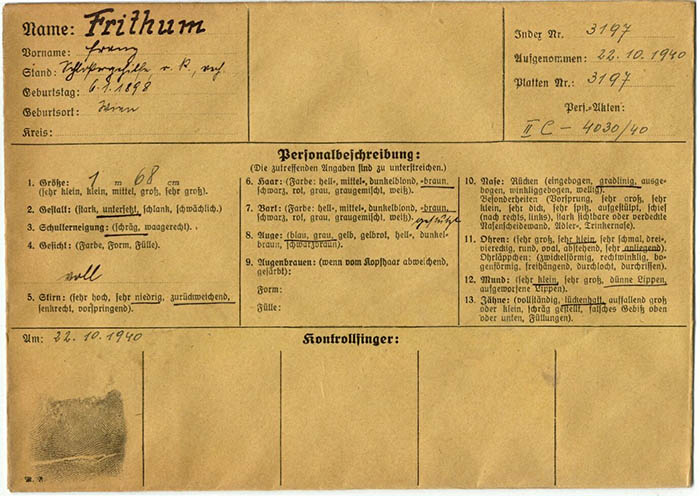 Name: Frithum
Vorname: Franz
Stand: Schlossergehilfe, r. k., verh.
Geburtstag: 6.1.1898
Geburtsort: Wien
Kreis:
Index Nr. 3197
Aufgenommen: 22.10.1940
Platten Nr.: 3197
Pers.-Akten:
II C – 4030/40
Personalbeschreibung:
(Die zutreffenden Angaben sind zu unterstreichen.)
1. Größe: 1 m 68 cm
(sehr klein, klein, mittel, groß, sehr groß).
2. Gestalt: (stark, untersetzt, schlank, schwächlich.)
3. Schulterneigung: (schräg, waagerecht).
4. Gesicht: (Farbe, Form, Fülle).
voll
5. Stirn: (sehr hoch, sehr niedrig, zurückweichend,
senkrecht, vorspringend).
6. Haar: (Farbe: hell-, mittel-, dunkelblond, -braun,
schwarz, rot, grau, graugemischt, weiß).
7. Bart: (Farbe: hell-, mittel-, dunkelblond, -braun,
schwarz, rot, grau, graugemischt, weiß). gestutzt
8. Auge: (blau, grau, gelb, gelbrot, hell-, dunkel-
braun, schwarzbraun).
9. Augenbrauen: (wenn vom Kopfhaar abweichend,
gefärbt):
Form:
Fülle:
10. Nase: Rücken (eingebogen, gradlinig, ausge-
bogen, winkliggebogen, wellig).
Besonderheiten (Vorsprung, sehr groß, sehr
klein, sehr dick, sehr spitz, aufgestülpt, schief
(nach rechts, links), stark sichtbare oder verdeckte
Nasenscheidewand, Adler-, Trinkernase).
11. Ohren: (sehr groß, sehr klein, sehr schmal, drei-,
viereckig, rund, oval, abstehend, sehr anliegend).
Ohrläppchen: (zwickelförmig, rechtwinklig, bo-
genförmig, freihängend, durchlocht, durchrissen).
12. Mund: (sehr klein, sehr groß, dünne Lippen,
aufgeworfene Lippen).
13. Zähne: (vollständig, lückenhaft, auffallend groß
oder klein, schräg gestellt, falsches Gebiß oben
oder unten, Füllungen).
Am: 22.10.1940
Kontrollfinger: